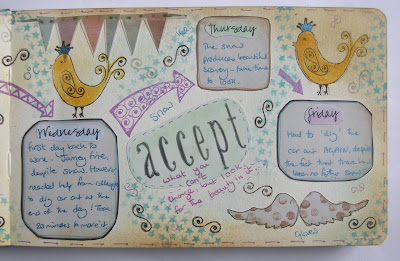 Wednesday
first day back to
work. Journey fine,
despite snow. However
needed help from colleague
to dig car out at the
end of the day! Took
20 minutes to move it.
snow
accept
what you
can't
change, but look
for the beauty in it
Thursday
The snow
produces beautiful
scenery - take time
to look.
Friday
Had to 'dig' the
car out AGAIN, despite
the fact that there had
been no further snow!